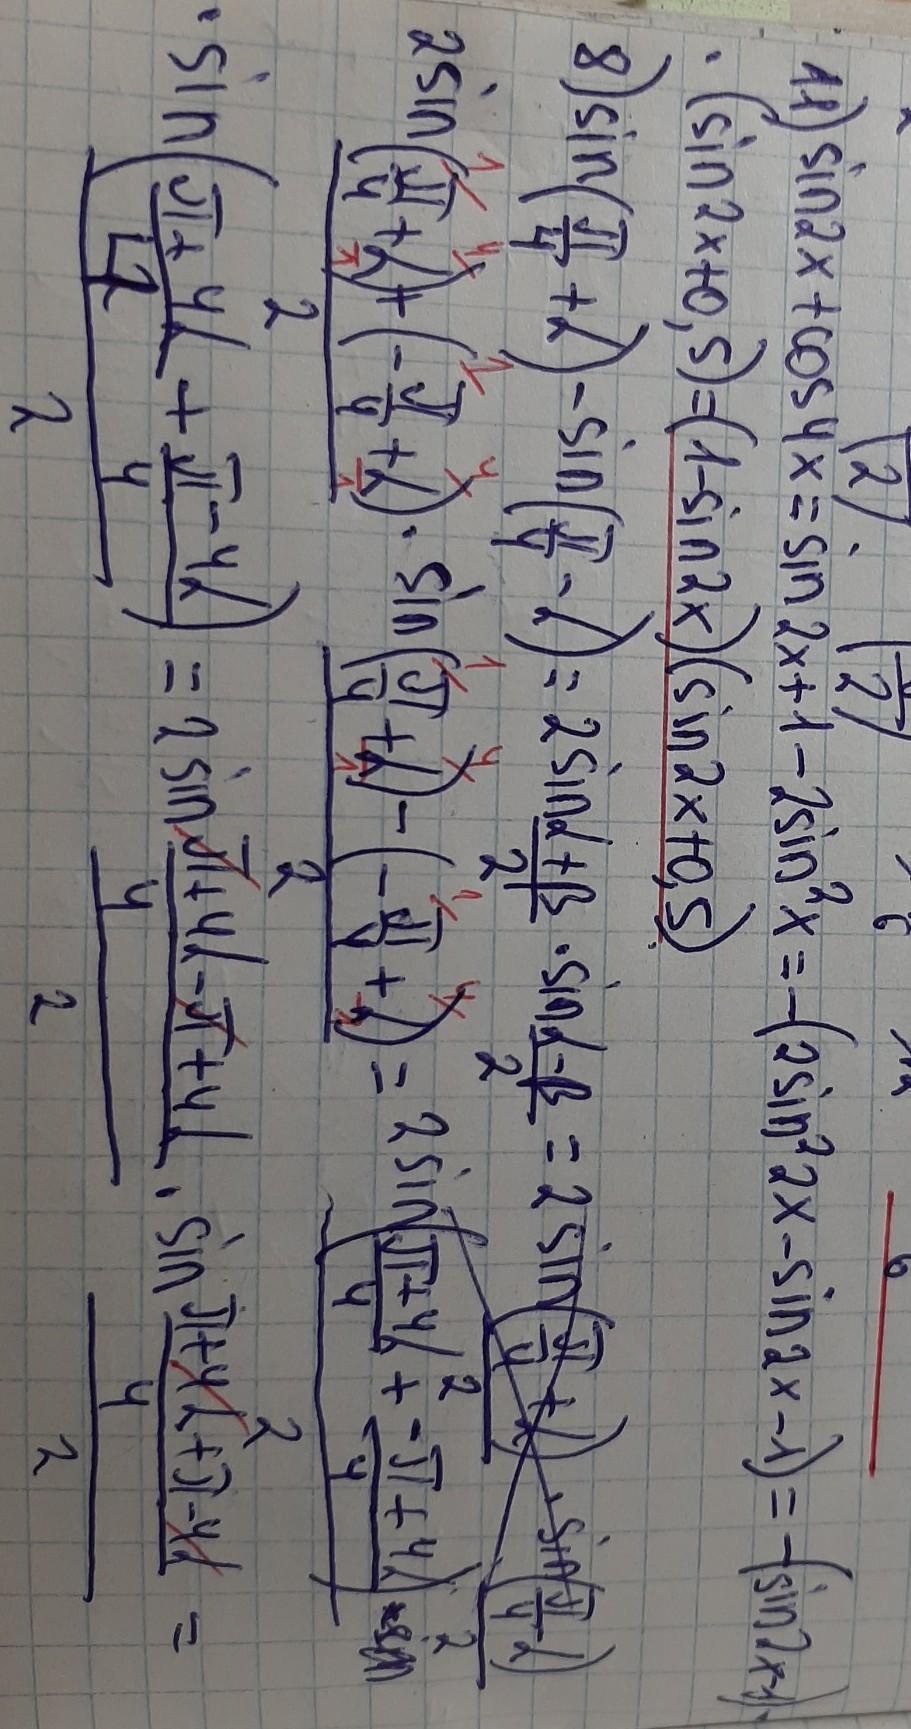 11) sin2x+cos4x=sin2x+1-2sin²x=-(2sin²2x-sin2x-1)=-(sin2x-1)·
·(sin2x+0,5)=(1-sin2x)(sin2x+0,5)
8) sin(π/4+α)-sin(π/4-α)=2sin α+β/2 · sin α-β/2 = 2sin (π/4+α)/2 · sin (π/4-α)/2
2sin ((π/4+α)+(-π/4+α))/2 · sin ((π/4+α)-(-π/4+α))/2 = 2sin (π+4α/4 + -π+4α/4)/2 · sin
·sin (π+4α/4 + π-4α/4)/2 = 2sin (π+4α-π+4α/4)/2 · sin (π+4α+π-4α/4)/2 =